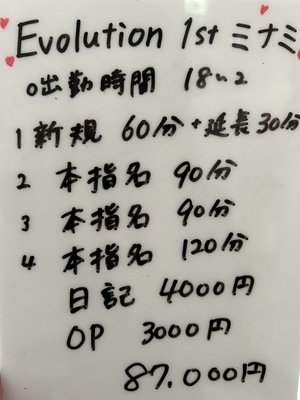 Evolution 1st ミナミ
○出勤時間 18〜2
1 新規 60分+延長30分
2 本指名 90分
3 本指名 90分
4 本指名 120分
日記 4000円
OP 3000円
87.000円